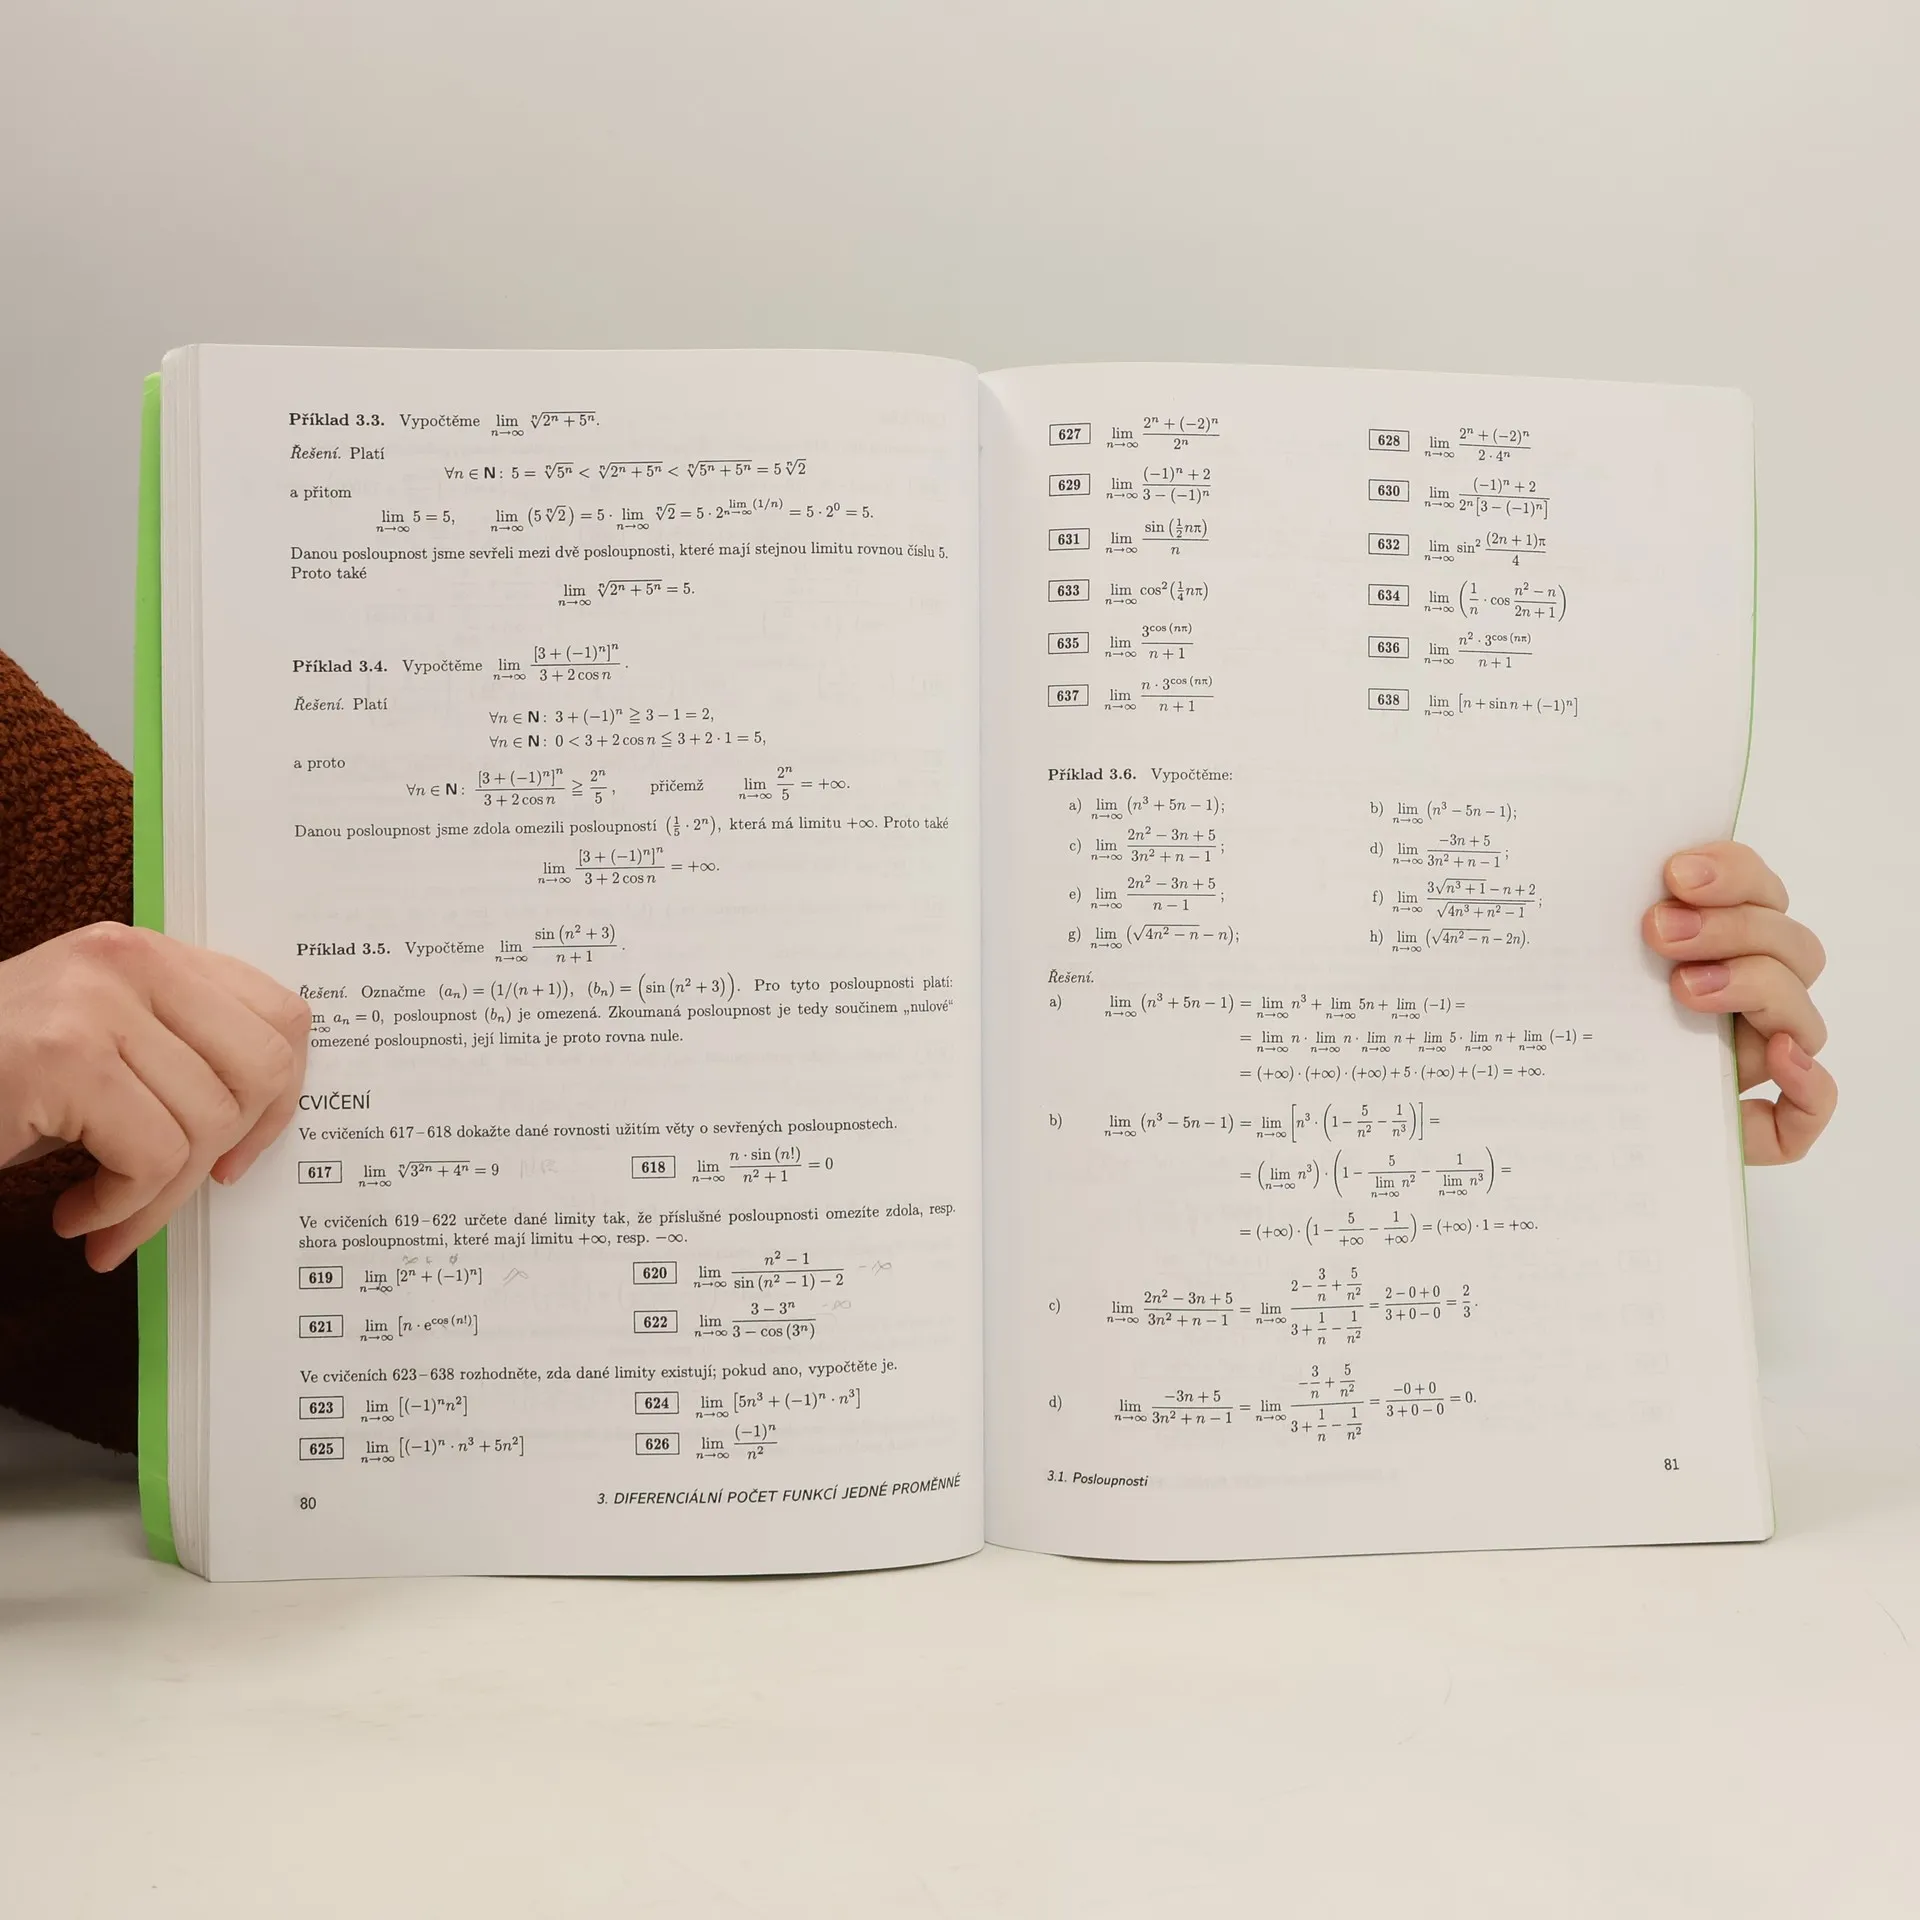 Příklad 3.3. Vypočtěme lim_{n→∞} ⁿ√(2ⁿ + 5ⁿ).
Řešení. Platí
∀n ∈ N: 5 = ⁿ√(5ⁿ) < ⁿ√(2ⁿ + 5ⁿ) < ⁿ√(5ⁿ + 5ⁿ) = 5 ⁿ√2
a přitom
lim_{n→∞} 5 = 5, lim_{n→∞} (5 ⁿ√2) = 5 · lim_{n→∞} ⁿ√2 = 5 · 2^{lim_{n→∞} (1/n)} = 5 · 2⁰ = 5.
Danou posloupnost jsme sevřeli mezi dvě posloupnosti, které mají stejnou limitu rovnou číslu 5.
Proto také
lim_{n→∞} ⁿ√(2ⁿ + 5ⁿ) = 5.
Příklad 3.4. Vypočtěme lim_{n→∞} [3 + (−1)ⁿ]ⁿ / (3 + 2 cos n).
Řešení. Platí
∀n ∈ N: 3 + (−1)ⁿ ≧ 3 − 1 = 2,
∀n ∈ N: 0 < 3 + 2 cos n ≦ 3 + 2 · 1 = 5,
a proto
∀n ∈ N: [3 + (−1)ⁿ]ⁿ / (3 + 2 cos n) ≧ 2ⁿ/5, přičemž lim_{n→∞} 2ⁿ/5 = +∞.
Danou posloupnost jsme zdola omezili posloupností (1/5 · 2ⁿ), která má limitu +∞. Proto také
lim_{n→∞} [3 + (−1)ⁿ]ⁿ / (3 + 2 cos n) = +∞.
Příklad 3.5. Vypočtěme lim_{n→∞} sin (n² + 3) / (n + 1).
Řešení. Označme (aₙ) = (1/(n + 1)), (bₙ) = (sin (n² + 3)). Pro tyto posloupnosti platí:
aₙ = 0, posloupnost (bₙ) je omezená. Zkoumaná posloupnost je tedy součinem „nulové“
omezené posloupnosti, její limita je proto rovna nule.
CVIČENÍ
Ve cvičeních 617–618 dokažte dané rovnosti užitím věty o sevřených posloupnostech.
617 lim_{n→∞} ⁿ√(3²ⁿ + 4ⁿ) = 9 618 lim_{n→∞} n · sin (n!) / (n² + 1) = 0
Ve cvičeních 619–622 určete dané limity tak, že příslušné posloupnosti omezíte zdola, resp.
shora posloupnostmi, které mají limitu +∞, resp. −∞.
619 lim_{n→∞} [2ⁿ + (−1)ⁿ] ∞ 620 lim_{n→∞} (n² − 1) / (sin (n² − 1) − 2) −∞
621 lim_{n→∞} [n · e^{cos (n!)}] 622 lim_{n→∞} (3 − 3ⁿ) / (3 − cos (3ⁿ)) −∞
Ve cvičeních 623–638 rozhodněte, zda dané limity existují; pokud ano, vypočtěte je.
623 lim_{n→∞} [(−1)ⁿn²] 624 lim_{n→∞} [5n³ + (−1)ⁿ · n³]
625 lim_{n→∞} [(−1)ⁿ · n³ + 5n²] 626 lim_{n→∞} (−1)ⁿ / n²
80 3. DIFERENCIÁLNÍ POČET FUNKCÍ JEDNÉ PROMĚNNÉ
627 lim_{n→∞} (2ⁿ + (−2)ⁿ) / 2ⁿ 628 lim_{n→∞} (2ⁿ + (−2)ⁿ) / (2 · 4ⁿ)
629 lim_{n→∞} ((−1)ⁿ + 2) / (3 − (−1)ⁿ) 630 lim_{n→∞} ((−1)ⁿ + 2) / (2ⁿ[3 − (−1)ⁿ])
631 lim_{n→∞} sin (½nπ) / n 632 lim_{n→∞} sin² (2n + 1)π / 4
633 lim_{n→∞} cos² (¼nπ) 634 lim_{n→∞} (1/n · cos (n² − n)/(2n + 1))
635 lim_{n→∞} 3^{cos (nπ)} / (n + 1) 636 lim_{n→∞} n² · 3^{cos (nπ)} / (n + 1)
637 lim_{n→∞} n · 3^{cos (nπ)} / (n + 1) 638 lim_{n→∞} [n + sin n + (−1)ⁿ]
Příklad 3.6. Vypočtěme:
a) lim_{n→∞} (n³ + 5n − 1); b) lim_{n→∞} (n³ − 5n − 1);
c) lim_{n→∞} (2n² − 3n + 5) / (3n² + n − 1); d) lim_{n→∞} (−3n + 5) / (3n² + n − 1);
e) lim_{n→∞} (2n² − 3n + 5) / (n − 1); f) lim_{n→∞} (3√(n³ + 1) − n + 2) / √(4n³ + n² − 1);
g) lim_{n→∞} (√(4n² − n) − n); h) lim_{n→∞} (√(4n² − n) − 2n).
Řešení.
a) lim_{n→∞} (n³ + 5n − 1) = lim_{n→∞} n³ + lim_{n→∞} 5n + lim_{n→∞} (−1) =
= lim_{n→∞} n · lim_{n→∞} n · lim_{n→∞} n + lim_{n→∞} 5 · lim_{n→∞} n + lim_{n→∞} (−1) =
= (+∞) · (+∞) · (+∞) + 5 · (+∞) + (−1) = +∞.
b) lim_{n→∞} (n³ − 5n − 1) = lim_{n→∞} [n³ · (1 − 5/n² − 1/n³)] =
= (lim_{n→∞} n³) · (1 − 5 / lim_{n→∞} n² − 1 / lim_{n→∞} n³) =
= (+∞) · (1 − 5/+∞ − 1/+∞) = (+∞) · 1 = +∞.
c) lim_{n→∞} (2n² − 3n + 5) / (3n² + n − 1) = lim_{n→∞} (2 − 3/n + 5/n²) / (3 + 1/n − 1/n²) = (2 − 0 + 0) / (3 + 0 − 0) = 2/3.
d) lim_{n→∞} (−3n + 5) / (3n² + n − 1) = lim_{n→∞} (−3/n + 5/n²) / (3 + 1/n − 1/n²) = (−0 + 0) / (3 + 0 − 0) = 0.
3.1. Posloupnosti 81